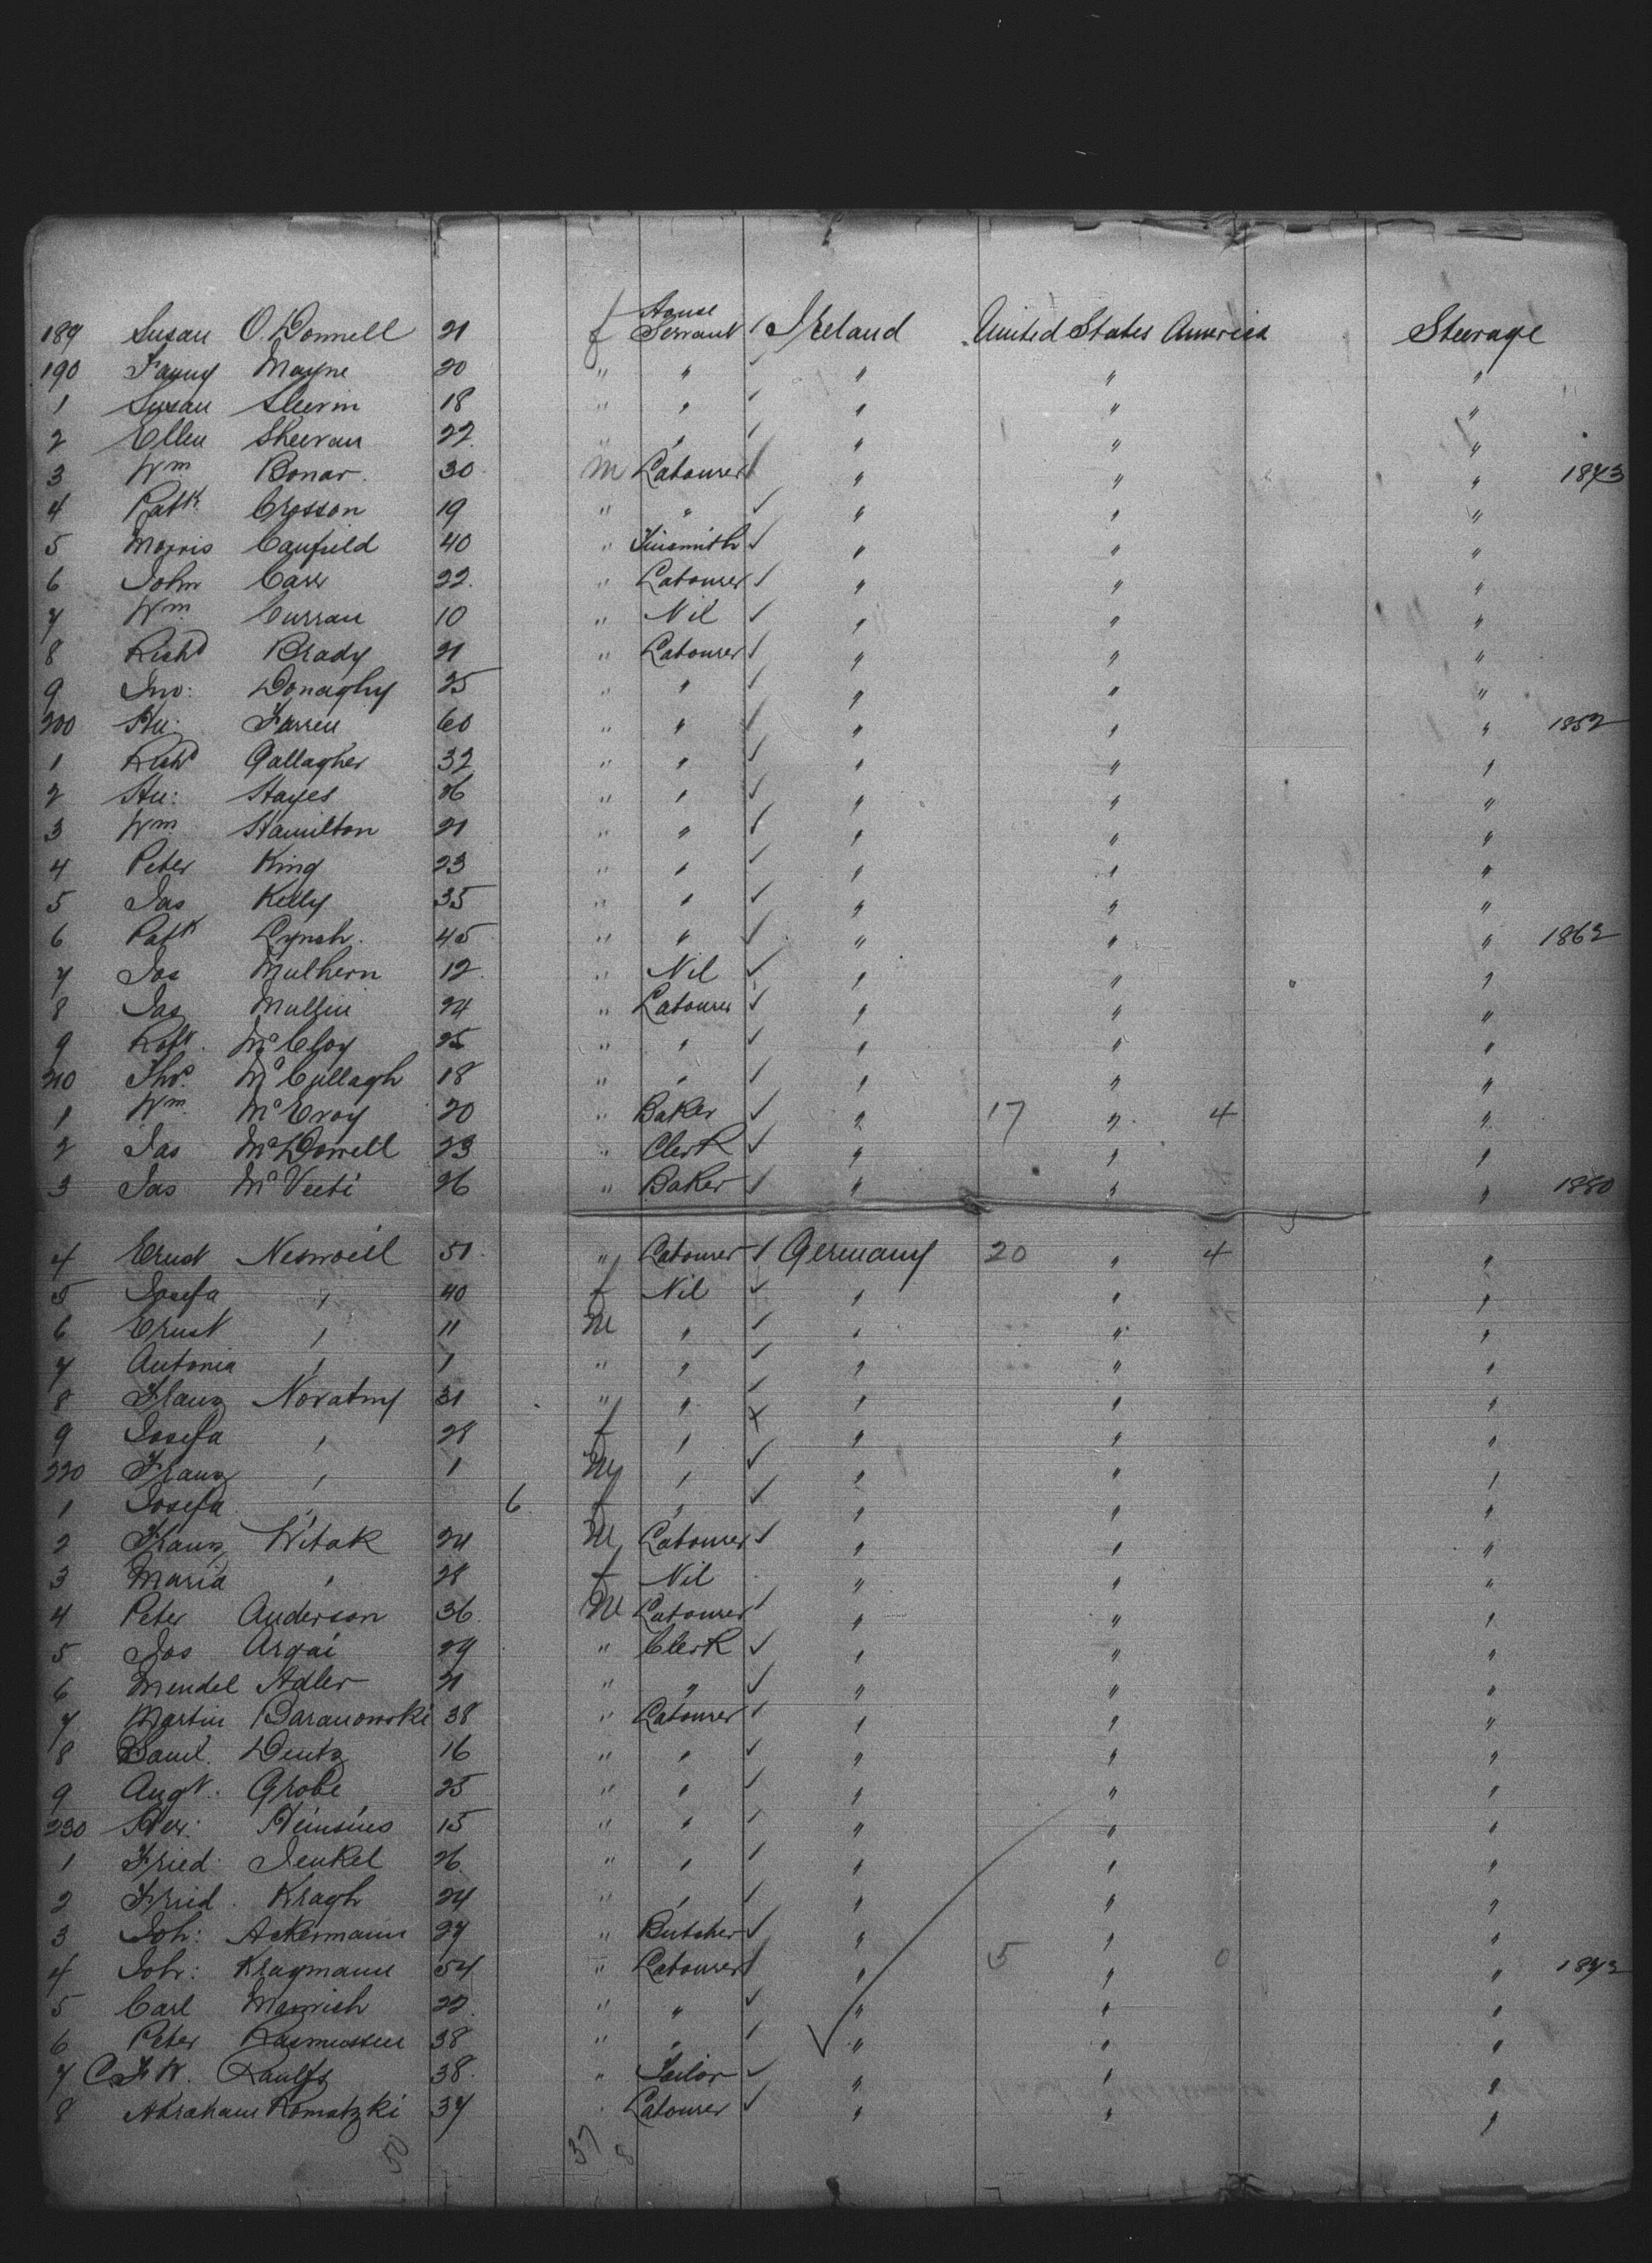 189 Susan O'Donnell 21 f House Servant ✓ Ireland United States America Steerage
190 Fanny Mayne 20 " " ✓ " " "
1 Susan Slevin 18 " " ✓ " " "
2 Ellen Sheeran 22 " " ✓ " " "
3 Wm Bonar 30 M Labourer ✓ " " " 1873
4 Patk Crosson 19 " " ✓ " " "
5 Morris Caufield 40 " Tinsmith ✓ " " "
6 John Carr 22 " Labourer ✓ " " "
7 Wm Curran 10 " Nil ✓ " " "
8 Richd Brady 21 " Labourer ✓ " " "
9 Jno: Donaghy 25 " " ✓ " " "
200 Hu: Farren 60 " " ✓ " " " 1852
1 Richd Gallagher 32 " " ✓ " " "
2 Hu: Hayes 26 " " ✓ " " "
3 Wm Hamilton 21 " " ✓ " " "
4 Peter King 23 " " ✓ " " "
5 Jas Kelly 35 " " ✓ " " "
6 Patk Lynch 45 " " ✓ " " " 1862
7 Jos Mulhern 12 " Nil ✓ " " "
8 Jas Mullin 24 " Labourer ✓ " " "
9 Robt. McCloy 25 " " ✓ " " "
210 Thos. McCullagh 18 " " ✓ " " "
1 Wm McEvoy 20 " Baker ✓ " 17 " 4 "
2 Jas McDowell 23 " Clerk ✓ " " "
3 Jas 26 " Baker ✓ " " " 1880
4 Ernst 51 " Labourer ✓ Germany 20 " 4 "
5 Josefa " 40 f Nil ✓ " " "
6 Ernst " 11 M " ✓ " " "
7 Antonia " 1 " " ✓ " " "
8 Franz Novatny 31 " " ✓ " " "
9 Josefa " 28 f " x " " "
220 Franz " 1 M " ✓ " " "
1 Josefa " 6 f " ✓ " " "
2 Franz Witak 24 M Labourer ✓ " " "
3 Maria " 28 f Nil " " "
4 Peter Anderson 36 M Labourer ✓ " " "
5 Jos Argai 29 " Clerk ✓ " " "
6 Mendel Adler 21 " " ✓ " " "
7 Martin Baranowski 38 " Labourer ✓ " " "
8 Saml. Deutz 16 " " ✓ " " "
9 Augt. Grobe 25 " " ✓ " " "
230 Her: Heinsius 15 " " ✓ " " "
1 Fried Jenkel 26 " " ✓ " " "
2 Fried. Kragh 24 " " ✓ " " "
3 Joh: Ackermann 27 " Butcher ✓ " " "
4 Joh: Kragmann 54 " Labourer ✓ " 5 " 0 "
5 Carl 22 " " ✓ " " "
6 Peter Rasmussen 38 " " ✓ " " "
7 C. F. W. Raulfs 38 " Tailor ✓ " " "
8 Abraham Romatzki 37 " Labourer ✓ " " "
50 37 8